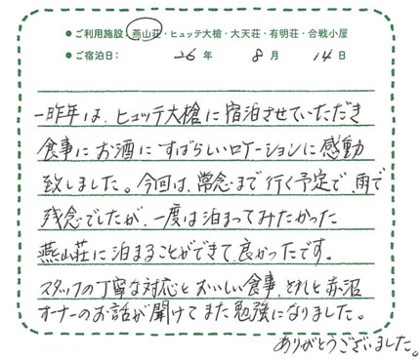 ●ご利用施設・燕山荘・ヒュッテ大槍・大天荘・有明荘・合戦小屋
●ご宿泊日： 26年 8月 14日
一昨年は、ヒュッテ大槍に宿泊させていただき
食事にお酒にすばらしいロケーションに感動
致しました。今回は、常念まで行く予定で、雨で
残念でしたが、一度は泊まってみたかった
燕山荘に泊まることができて良かったです。
スタッフの丁寧な対応とおいしい食事、それと赤沼
オーナーのお話が聞けてまた勉強になりました。
ありがとうございました。